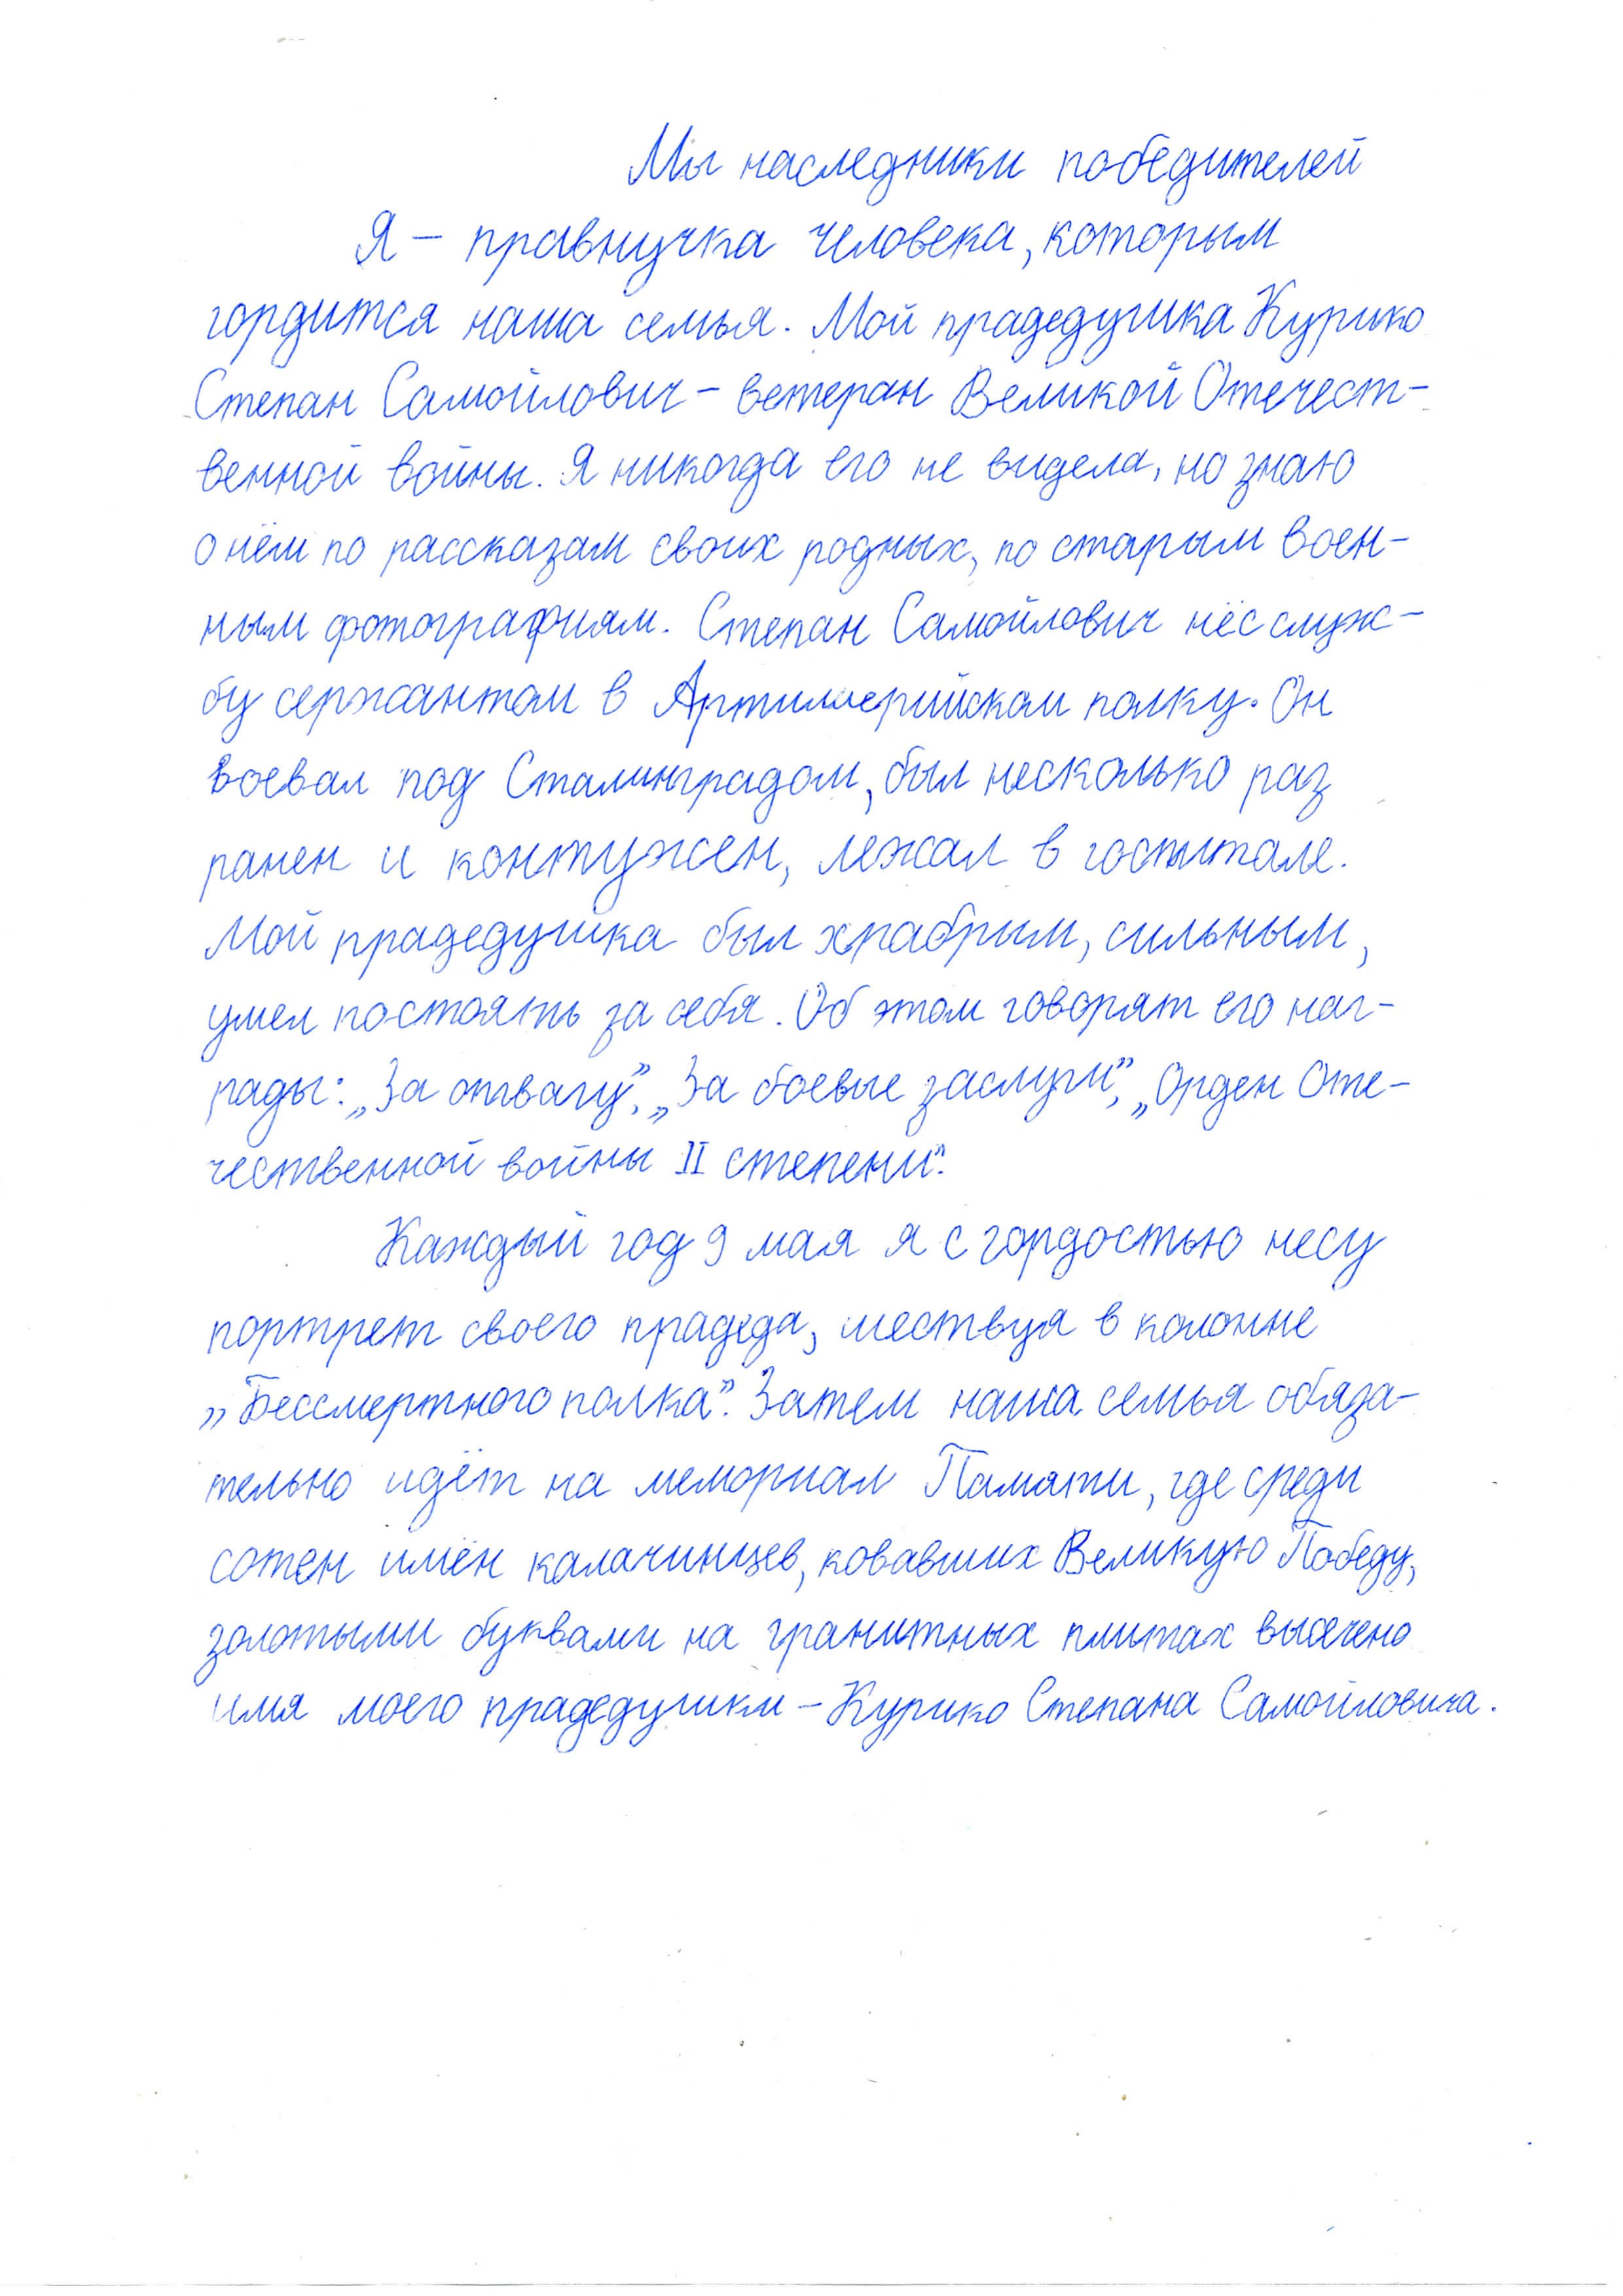 Мы наследники победителей
Я – правнучка человека, которым
гордится наша семья. Мой прадедушка Курико
Степан Самойлович – ветеран Великой Отечест-
венной войны. Я никогда его не видела, но знаю
о нём по рассказам своих родных, по старым воен-
ным фотографиям. Степан Самойлович нёс служ-
бу сержантом в Артиллерийском полку. Он
воевал под Сталинградом, был несколько раз
ранен и контужен, лежал в госпитале.
Мой прадедушка был храбрым, сильным,
умел постоять за себя. Об этом говорят его наг-
рады: „За отвагу”, „За боевые заслуги”, „Орден Оте-
чественной войны II степени”.
Каждый год 9 мая я с гордостью несу
портрет своего прадеда, шествуя в колонне
„Бессмертного полка”. Затем наша семья обяза-
тельно идёт на мемориал Памяти, где среди
сотен имён калачинцев, ковавших Великую Победу,
золотыми буквами на гранитных плитах высечено
имя моего прадедушки – Курико Степана Самойловича.